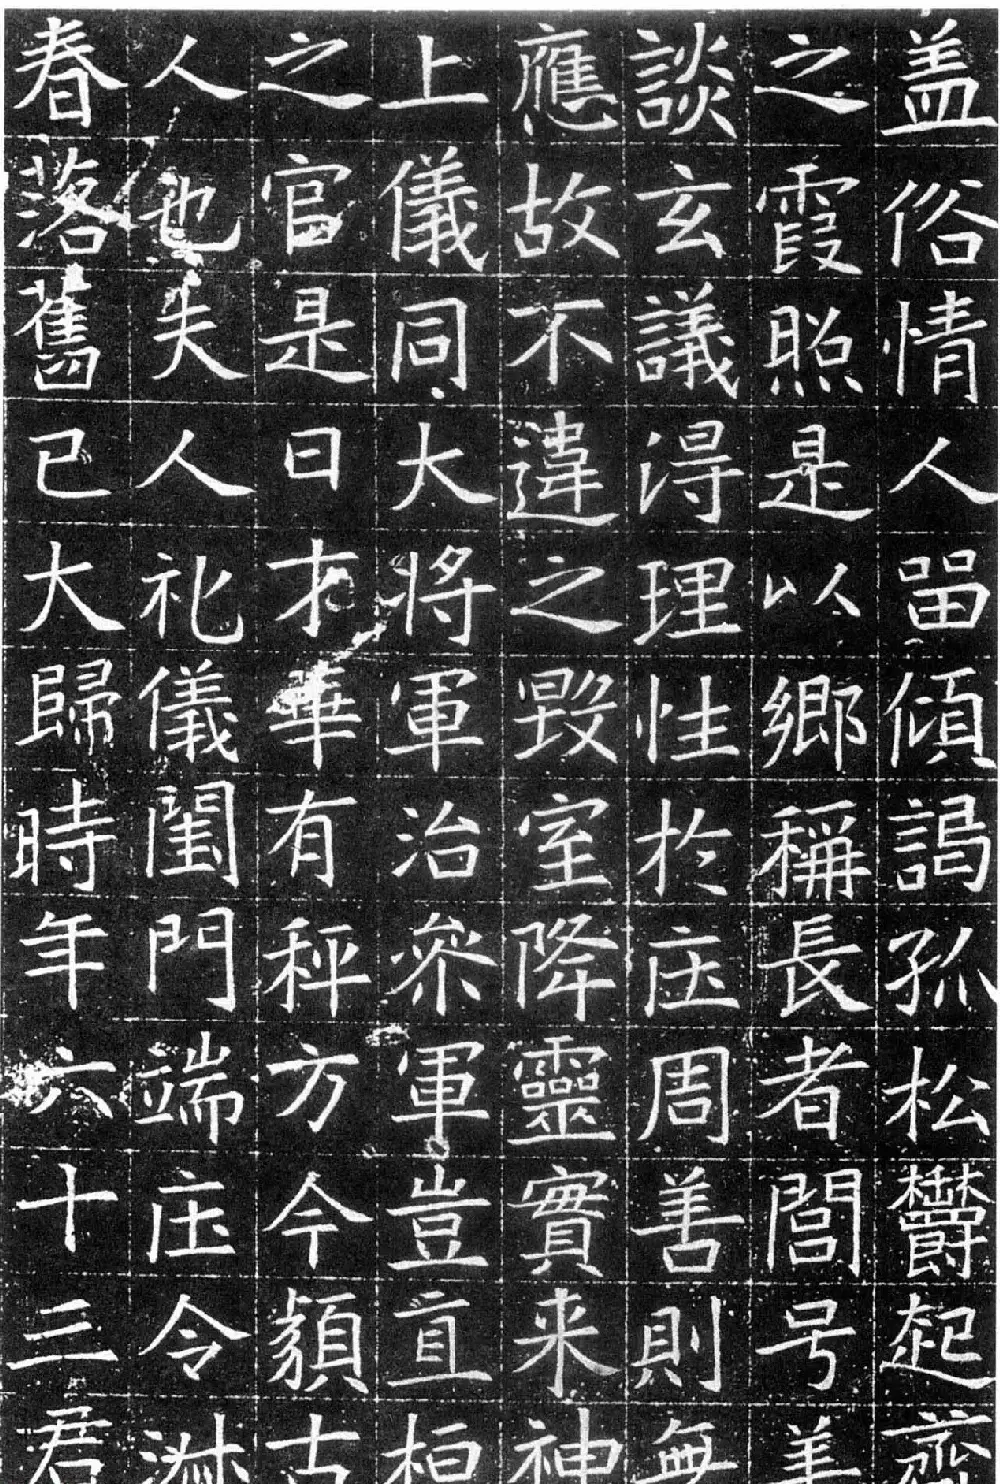 盖俗情人畄傾謁孤松欝起齊
之霞照是以鄉稱長者閭号美
談玄議淂理性扵庄周善則無
應故不違之毀室降靈實来神
上儀同大将軍治叅軍豈直栢
之官是曰才華有秤方今顡古
人也失人礼儀闺門端庄令淋
春落舊已大歸時年六十三君